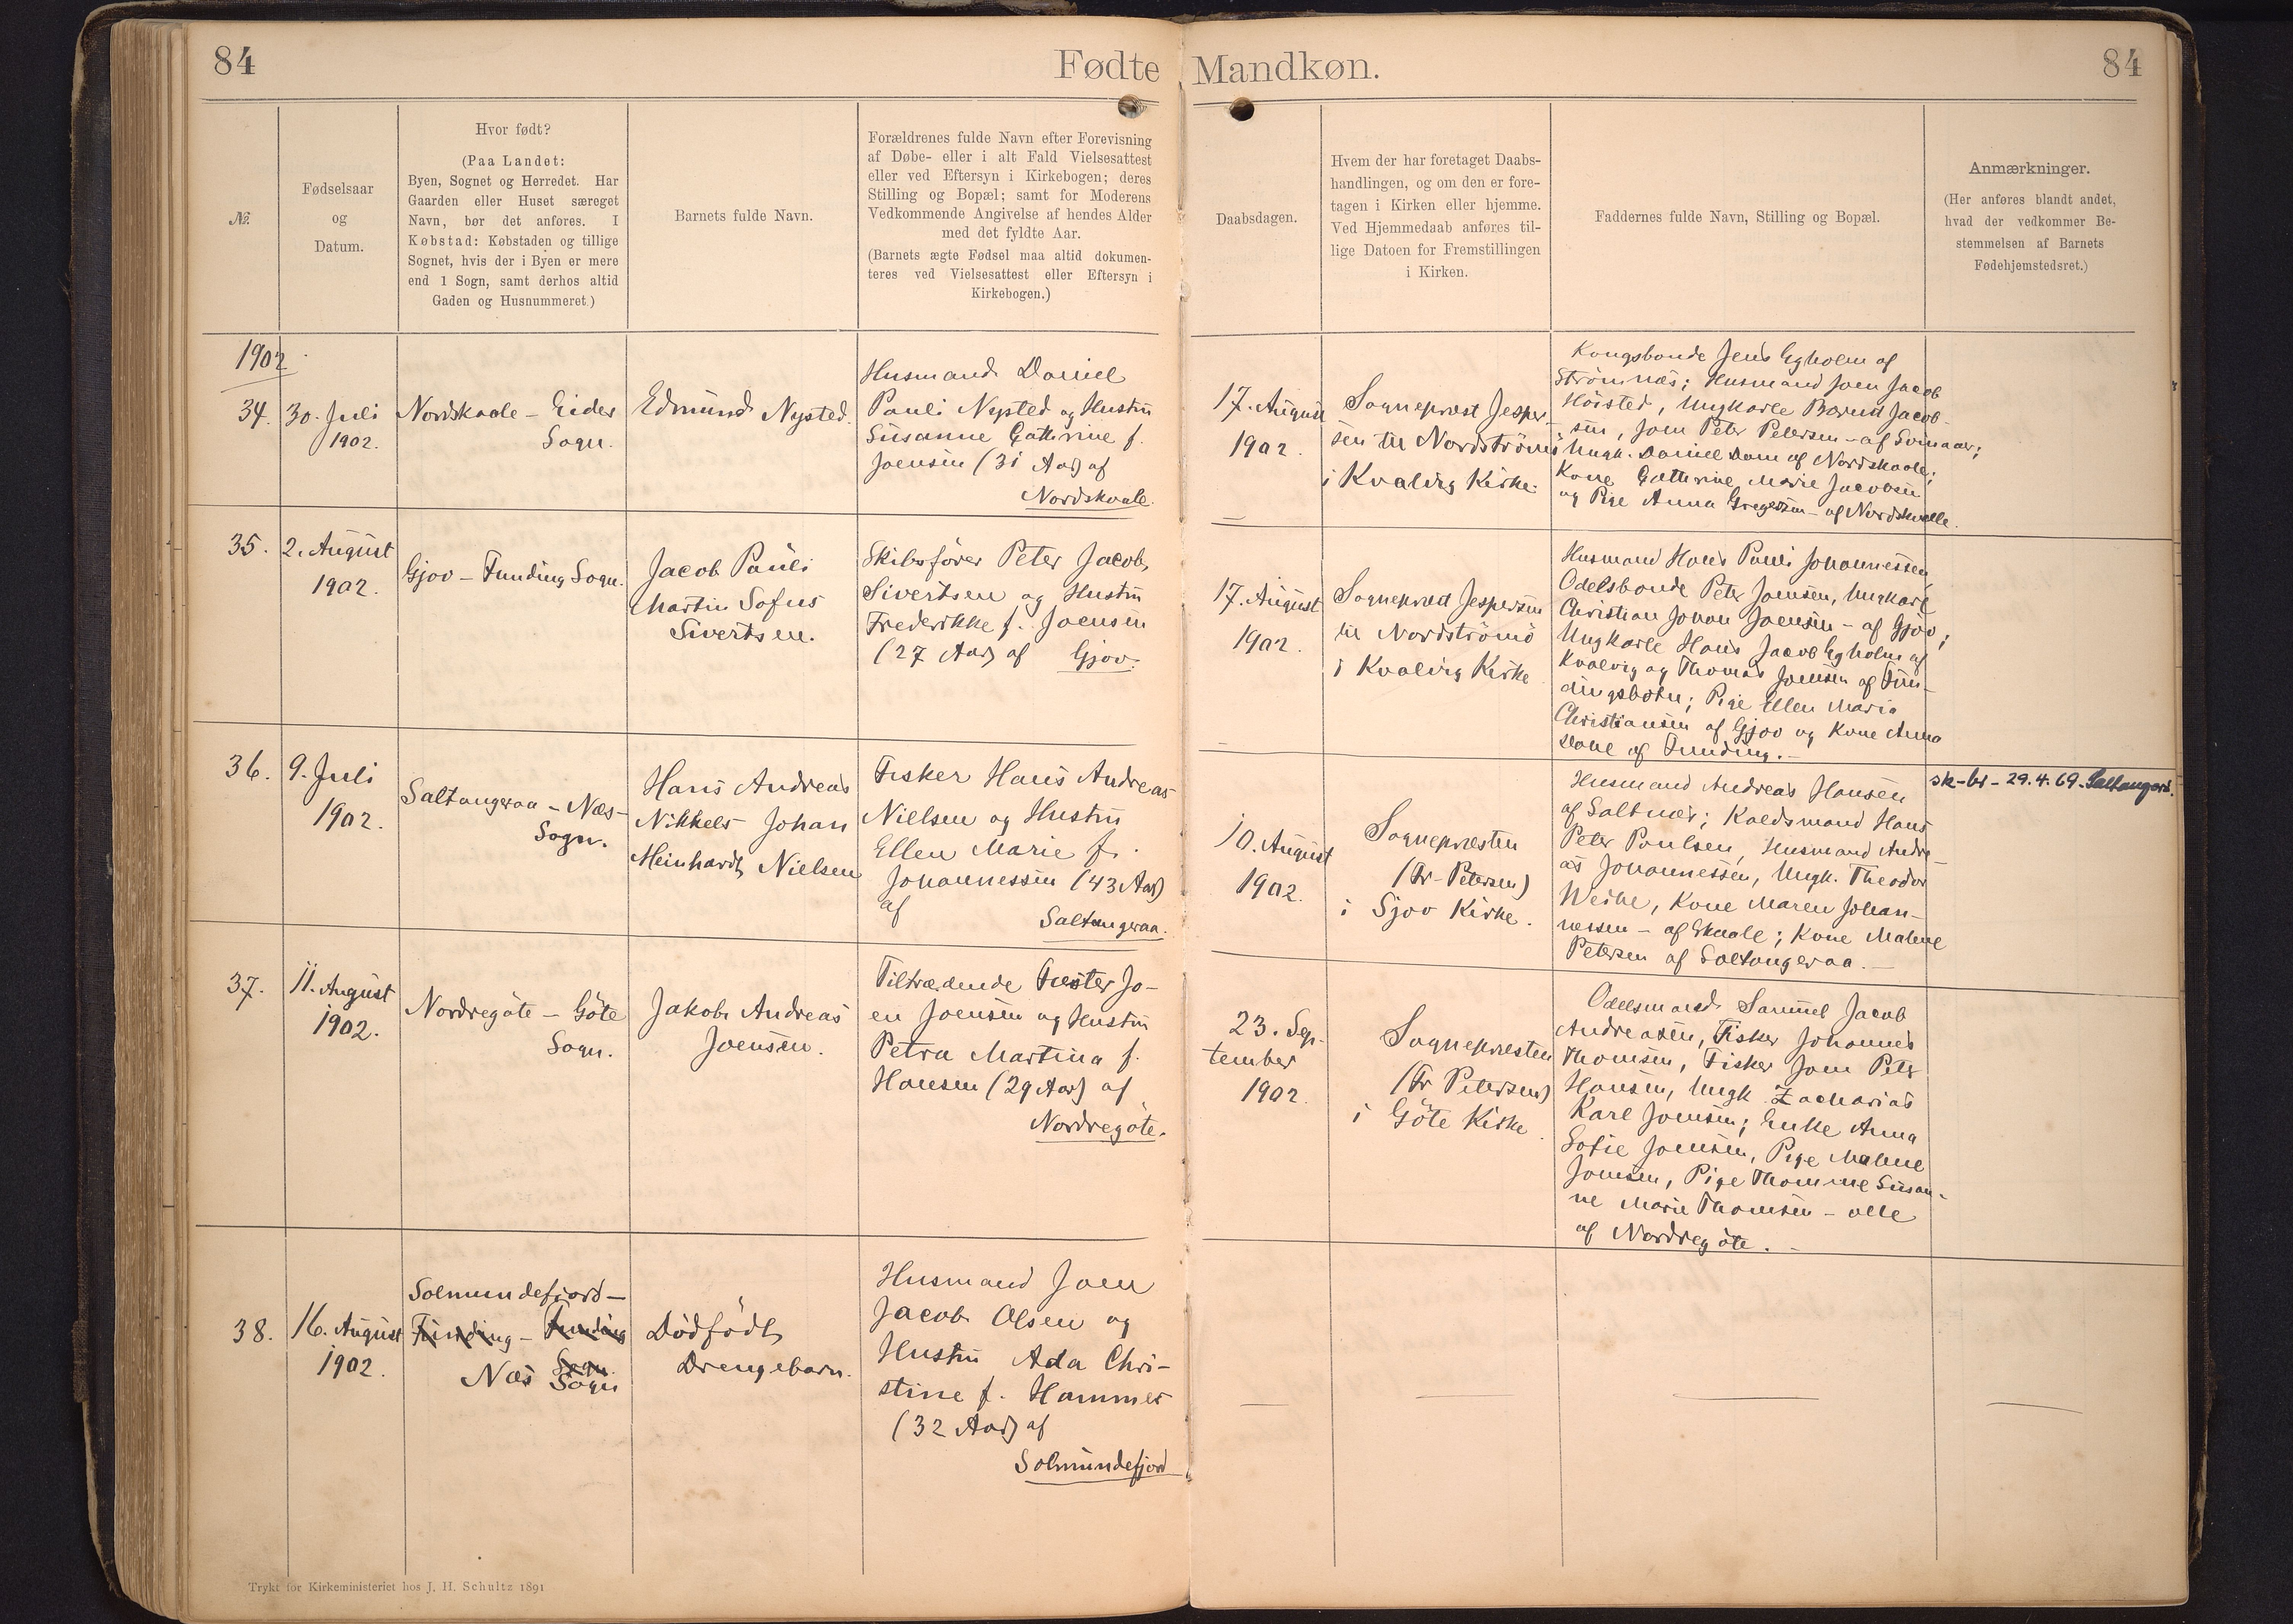 84
Fødte Mandkøn.
84
№.
Fødselsaar
og
Datum.
Hvor født?
(Paa Landet:
Byen, Sognet og Herredet. Har
Gaarden eller Huset særeget
Navn, bør det anføres. I
Købstad: Købstaden og tillige
Sognet, hvis der i Byen er mere
end 1 Sogn, samt derhos altid
Gaden og Husnummeret.)
Barnets fulde Navn.
Forældrenes fulde Navn efter Forevisning
af Døbe- eller i alt Fald Vielsesattest
eller ved Eftersyn i Kirkebogen; deres
Stilling og Bopæl; samt for Moderens
Vedkommende Angivelse af hendes Alder
med det fyldte Aar.
(Barnets ægte Fødsel maa altid dokumen-
teres ved Vielsesattest eller Eftersyn i
Kirkebogen.)
Daabsdagen.
Hvem der har foretaget Daabs-
handlingen, og om den er fore-
tagen i Kirken eller hjemme.
Ved Hjemmedaab anføres til-
lige Datoen for Fremstillingen
i Kirken.
Faddernes fulde Navn, Stilling og Bopæl.
Anmærkninger.
(Her anføres blandt andet,
hvad der vedkommer Be-
stemmelsen af Barnets
Fødehjemstedsret.)
1902
34.
30. Juli
1902.
Nordskaale - Eider
Sogn.
Edmund Nysted.
Husmand Daniel
Pauli Nysted og Hustru
Susanne Cathrine f.
Joensen (31 Aar) af
Nordskaale.
17. August
1902.
Sognepræst Jesper-
sen til Nordströmö
i Kvalvig Kirke.
Kongsbonde Jens Egholm af
Strömnæs; Husmand Joen Jacob
Höisted, Ungkarle Berint Jacob-
sen, Joen Peter Petersen - af Svinaaer;
Ungk. Daniel Dam af Nordskaale;
Kone Cathrine Marie Jacobsen
og Pige Anna Gregersen - af Nordskaale.
35.
2. August
1902.
Gjov - Funding Sogn.
Jacob Pauli
Martin Sofus
Sivertsen.
Skibsförer Peter Jacob
Sivertsen og Hustru
Frederikke f. Joensen
(27 Aar) af Gjov.
17. August
1902.
Sognepræst Jespersen
til Nordströmö
i Kvalvig Kirke
Husmand Hans Pauli Johannessen,
Odelsbonde Peter Joensen, Ungkarl
Christian Johan Joensen - af Gjov;
Ungkarle Hans Jacob Egholm af
Kvalvig og Thomas Joensen af Fun-
dingsbotn; Pige Ellen Maria
Christiansen af Gjov og Kone Anna
af Funding. -
36.
9. Juli
1902.
Saltangeraa - Næs-
Sogn.
Hans Andreas
Nikkels Johan
Meinhardt Nielsen
Fisker Hans Andreas
Nielsen og Hustru
Ellen Marie f.
Johannessen (43 Aar)
af
Saltangeraa.
10. August
1902.
Sognepræsten
(Fr. Petersen)
i Sjov Kirke.
Husmand Andreas Hansen
af Saltnæs; Husmand Andre-
Peter Poulsen, Husmand Andre-
as Johannessen, Ungk. Theodor
Weihe, Kone Maren Johan-
nessen - af Skaale; Kone Malene
Petersen af Saltangeraa. -
sk-br - 29.4.69. Saltangará.
37.
11. August
1902.
Nordregöte - Göte
Sogn.
Jakob Andreas
Joensen.
Tiltrædende Fæster Jo-
en Joensen og Hustru
Petra Martina f.
Hansen (29 Aar) af
Nordregöte.
23. Sep-
tember
1902.
Sognepræsten
(Fr Petersen)
i Göte Kirke.
Odelsmand Samuel Jacob
Andreasen, Fisker Johannes
Thomsen, Fisker Joen Peter
Hansen, Ungk Zacharias
Karl Joensen; Enke Anna
Sofie Joensen, Pige Malene
Joensen, Pige Thomine Susan-
ne Marie Thomsen - alle
af Nordregöte. -
38.
16. August
1902.
Solmundefjord -
Funding - Funding
Sogn.
Næs Sogn
Dödfödt
Drengebarn.
Husmand Joen
Jacob Olsen og
Hustru Ada Chri-
stine f. Hammer
(32 Aar) af
Solmundefjord
Trykt for Kirkeministeriet hos J. H. Schultz 1891